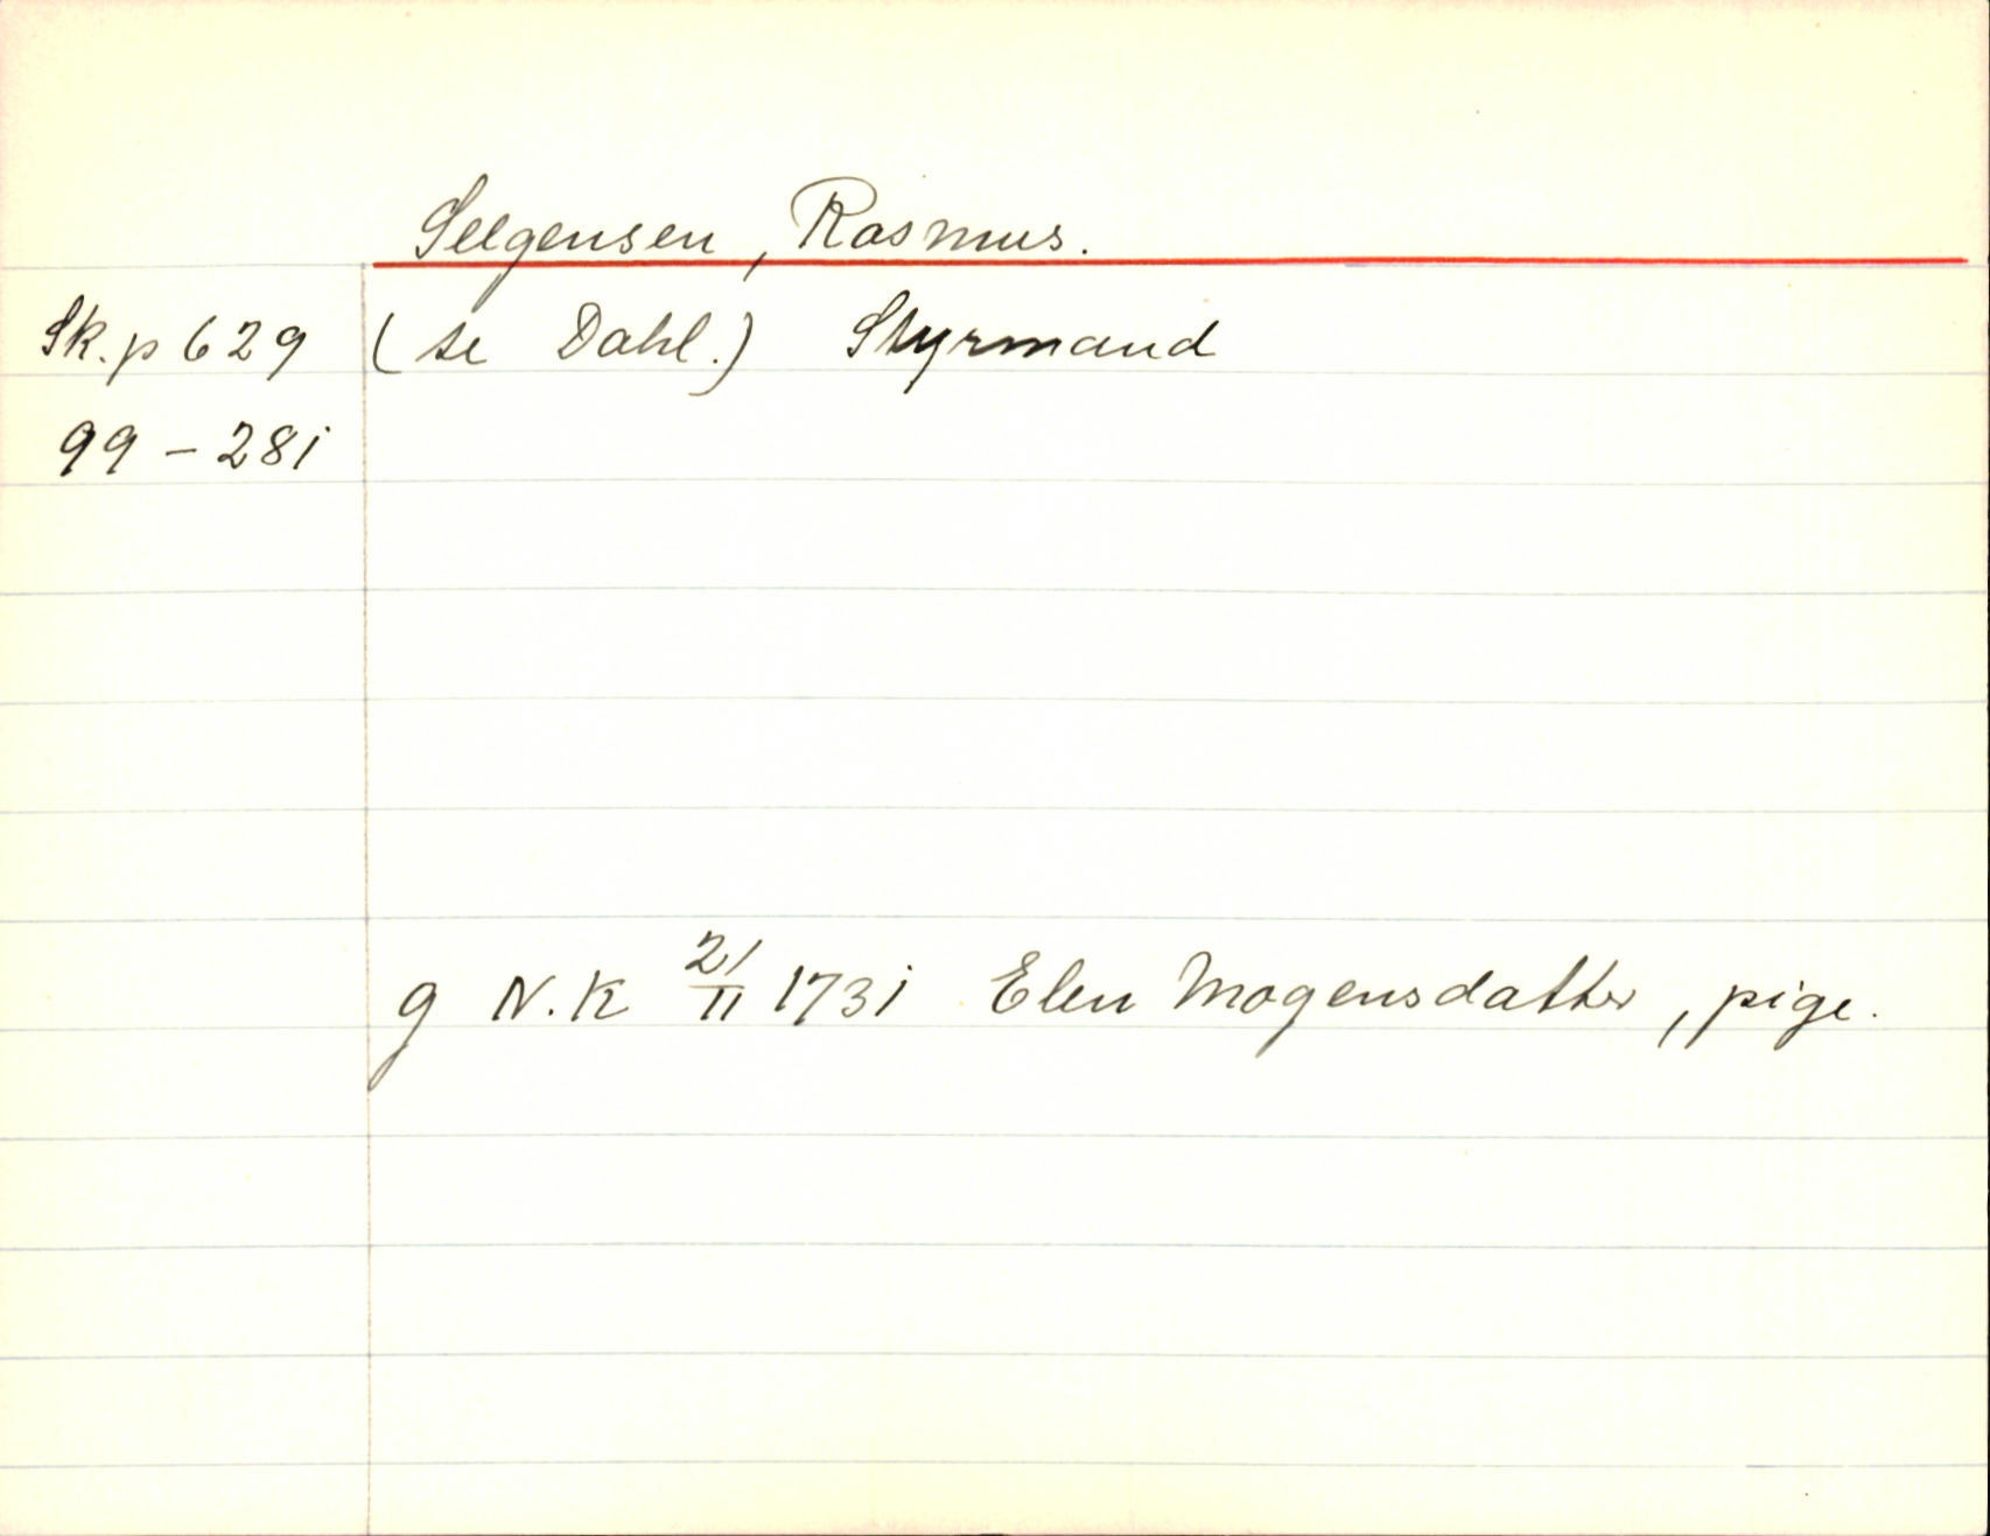 Selgensen, Rasmus.
Sk. p 629 (se Dahl.) Styrmand
99 - 281
g N.K 21/II 1731 Elen Mogensdatter, pige.